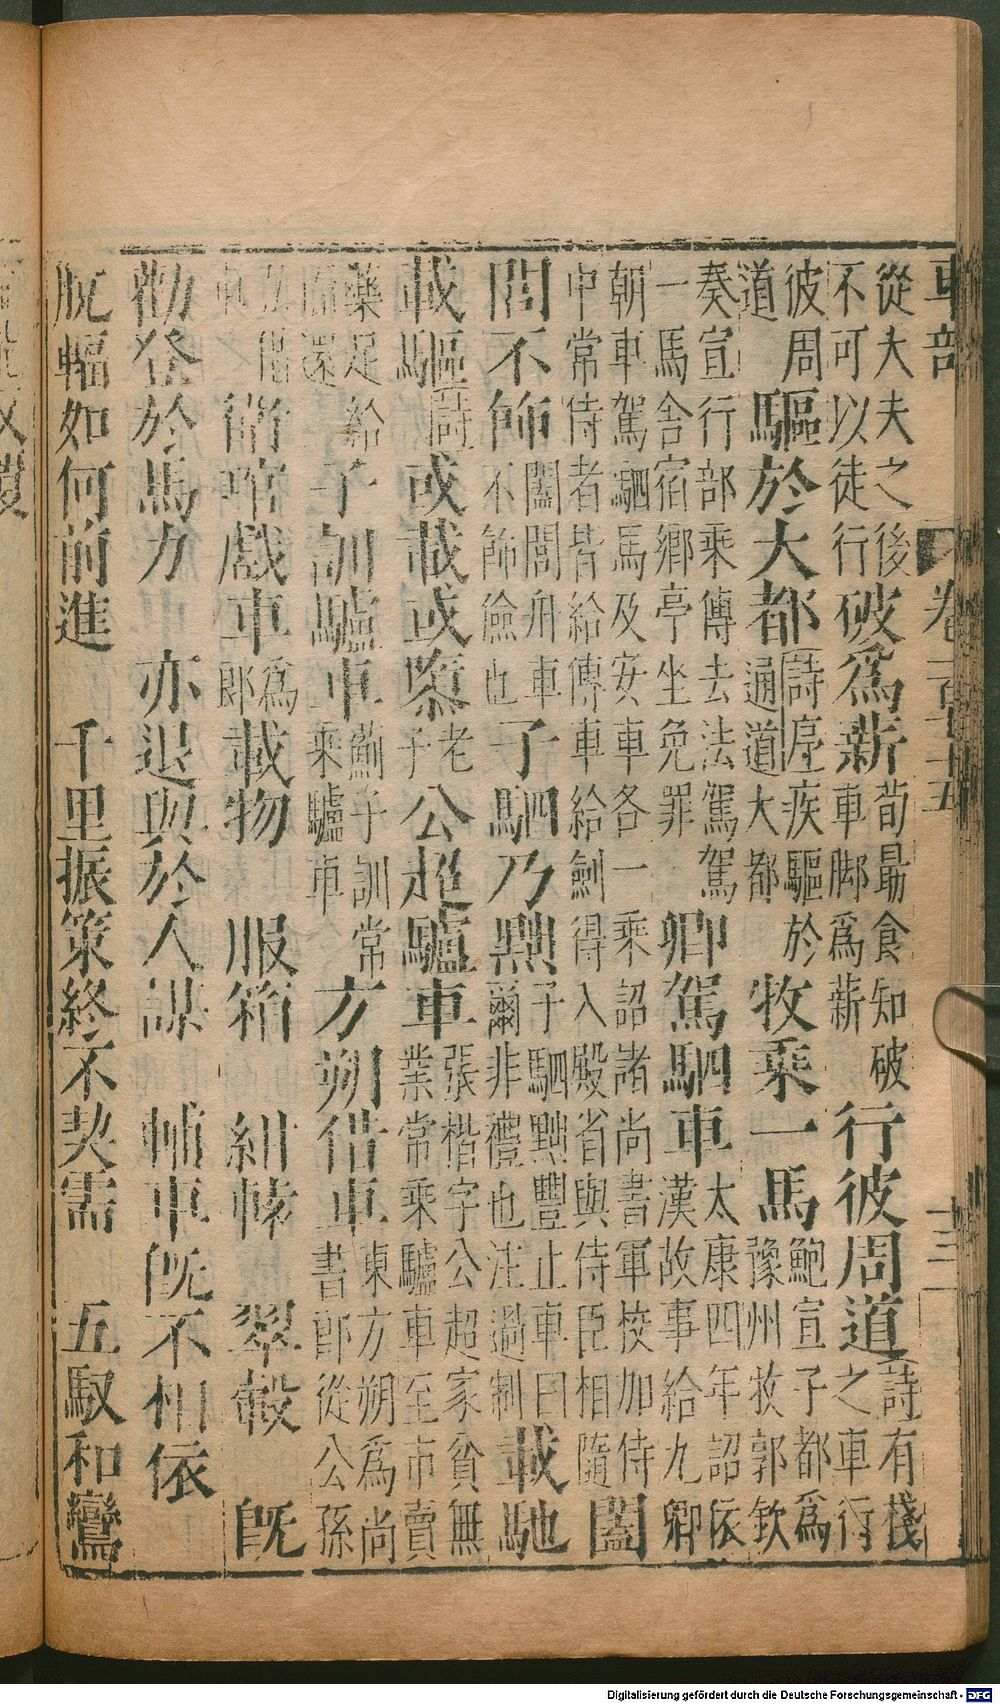 車部 卷一百十五 十三
從大夫之後
不可以徒行
破爲薪
荀勗食知破
車脚爲薪
行彼周道
詩有棧
之車行
彼周
道
驅於大都
詩序疾驅於
通道大都
牧乘一馬
鮑宣子都爲
豫州牧郭欽
奏宣行部乘傳去法駕駕
一馬舍宿鄉亭坐免罪
卿駕駟車
太康四年詔依
漢故事給九卿
朝車駕駟馬及安車各一乘詔諸尚書軍校加侍
中常侍者皆給傳車給劍得入殿省與侍臣相隨
闔
閭不飾
闔閭舟車
不飾儉也
子駟乃黜
子駟黜豐止車曰
爾非禮也注過制
載馳
載驅
詩
或載或隳
老
子
公超驢車
張楷字公超家貧無
業常乘驢車至市賣
藥足給
而還
子訓驢車
薊子訓常
乘驢車
方朔借車
東方朔爲尚
書郎從公孫
弘借
車之
衛綰戲車
爲
郎
載物 服箱 紺幰 翠轂 既
勸登於馬力 亦退與於人謀 輔車既不相依
脫輻如何前進 千里振策終不契需 五馭和鸞
Digitalisierung gefördert durch die Deutsche Forschungsgemeinschaft - DFG